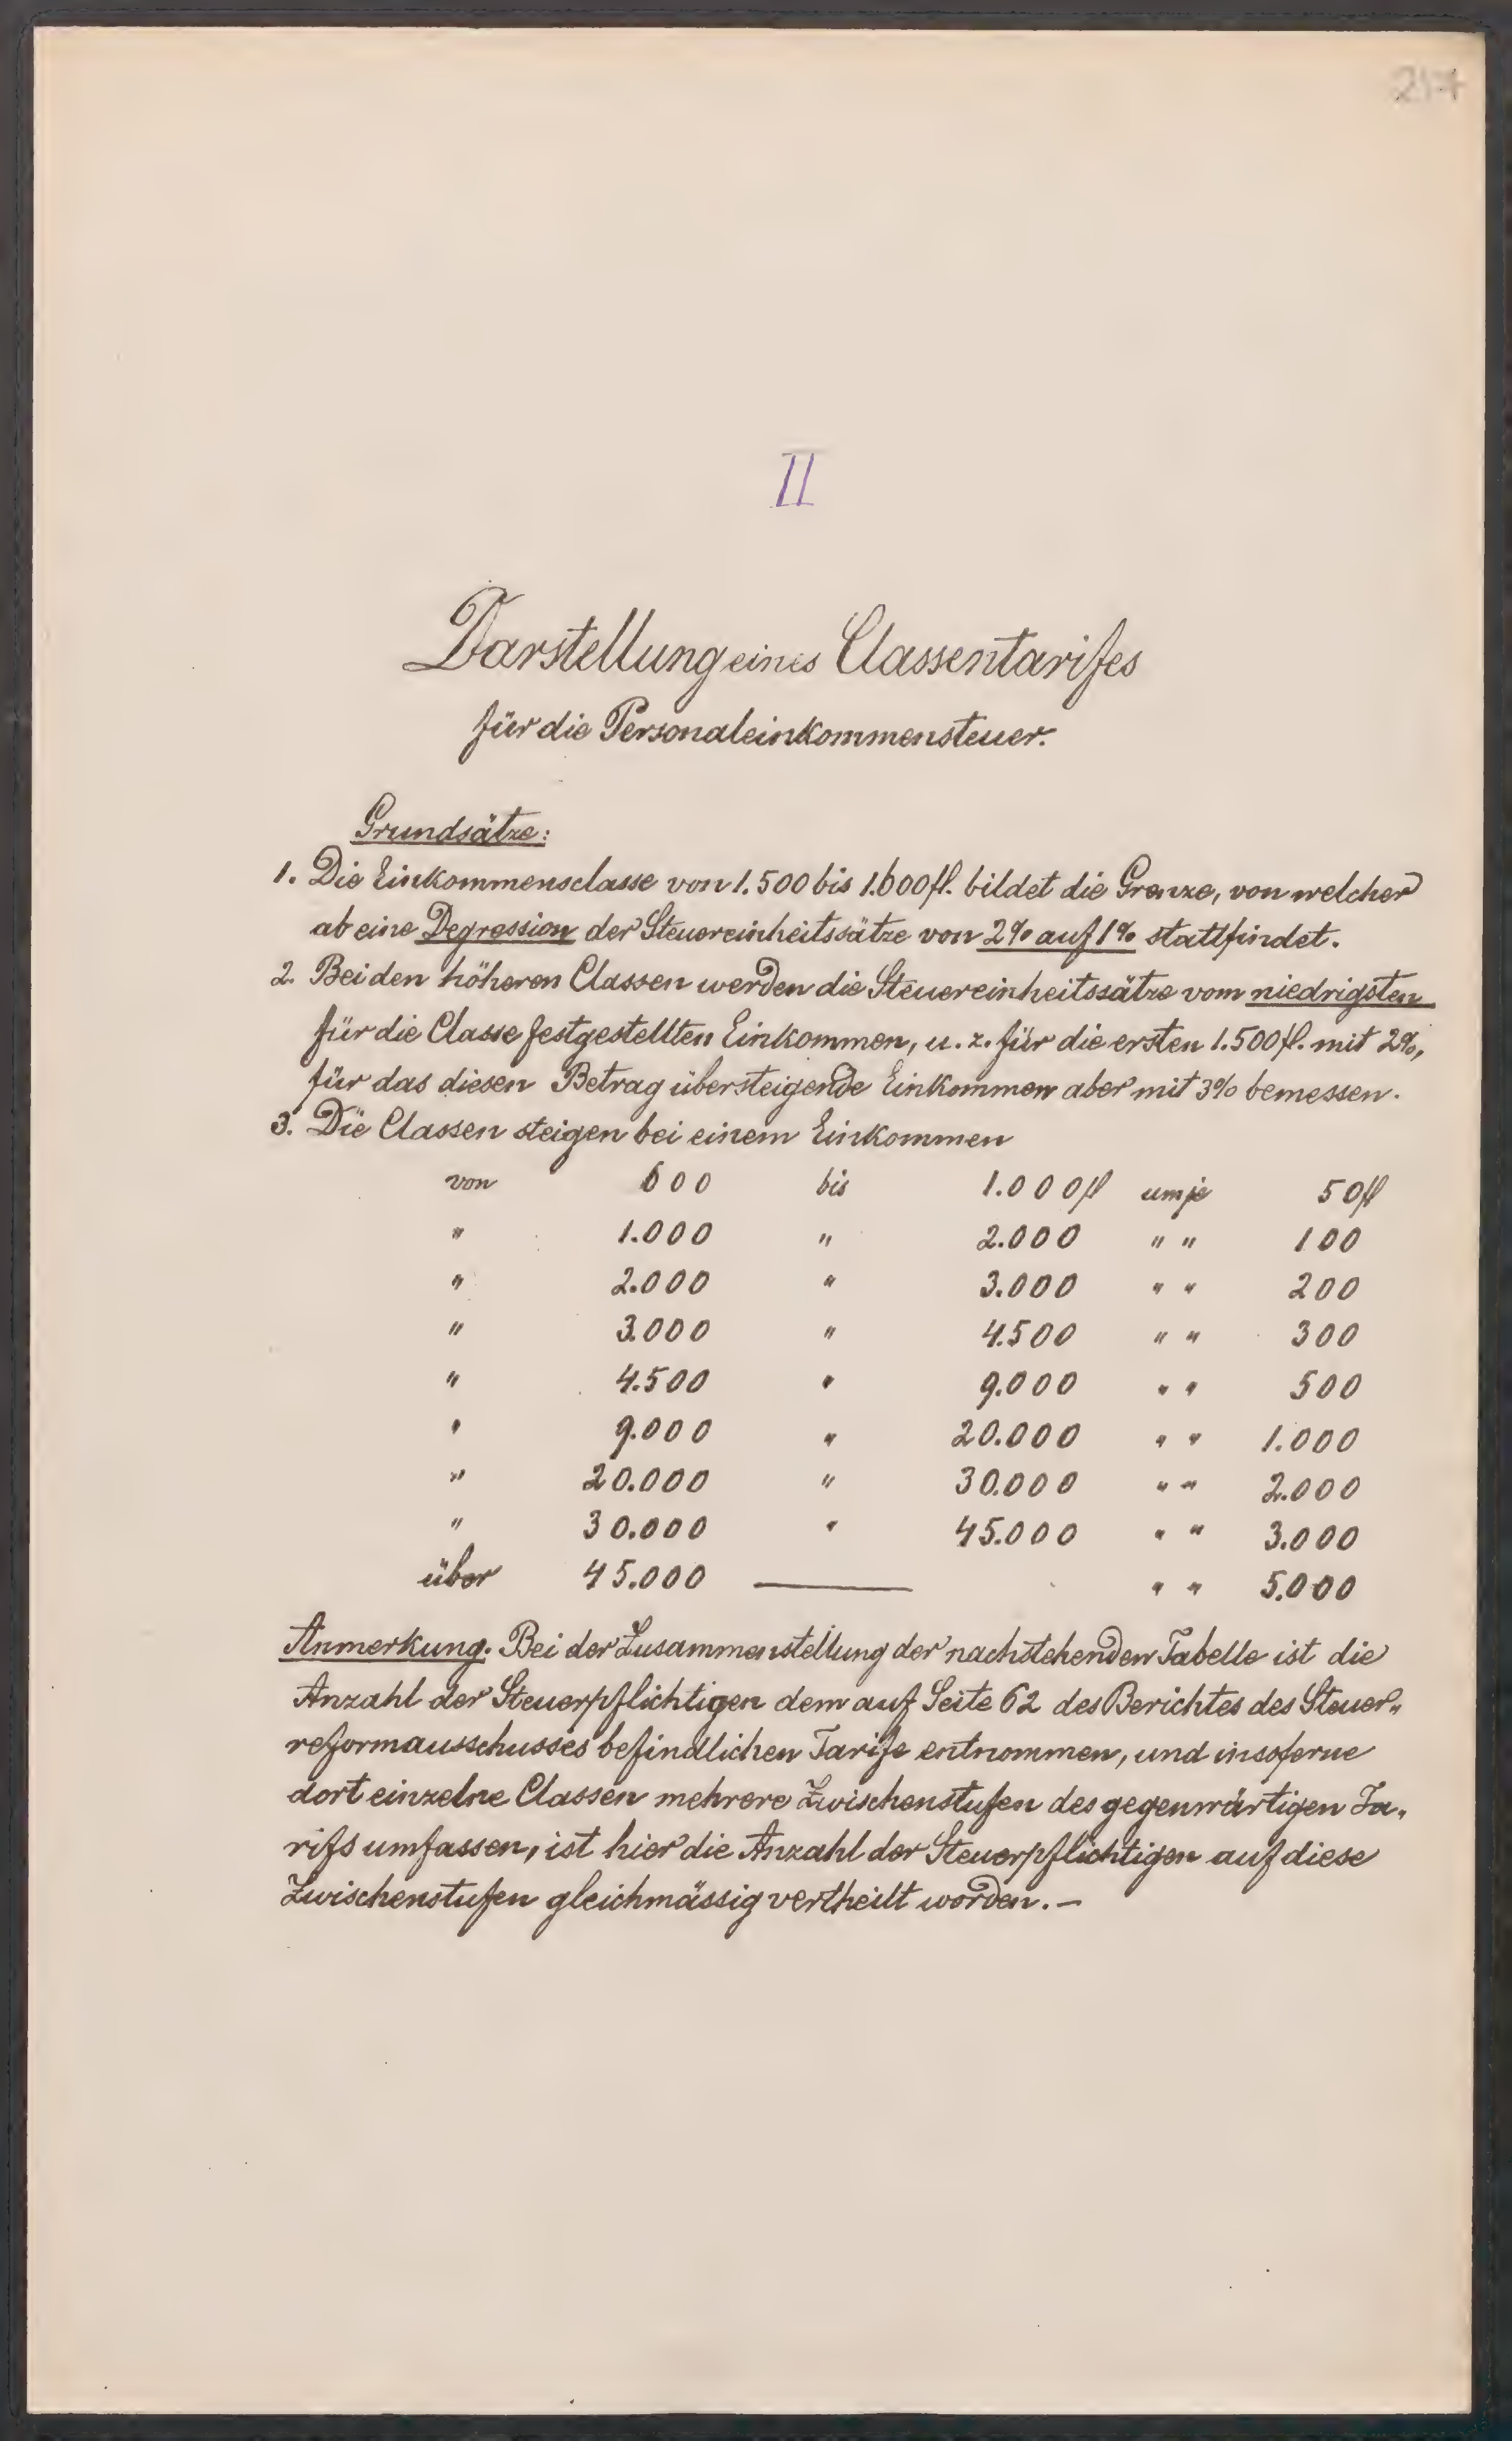 217
II
Darstellung eines Classentarifes
für die Personaleinkommensteuer.
Grundsätze:
1. Die Einkommensclasse von 1.500 bis 1.600 fl. bildet die Grenze, von welcher
ab eine Degression der Steuereinheitssätze von 2% auf 1% stattfindet.
2. Bei den höheren Classen werden die Steuereinheitssätze vom niedrigsten
für die Classe festgestellten Einkommen, u. z. für die ersten 1.500 fl. mit 2%,
für das diesen Betrag übersteigende Einkommen aber mit 3% bemessen.
3. Die Classen steigen bei einem Einkommen
von 600 bis 1.000 fl um je 50 fl
" 1.000 " 2.000 " " 100
" 2.000 " 3.000 " " 200
" 3.000 " 4.500 " " 300
" 4.500 " 9.000 " " 500
" 9.000 " 20.000 " " 1.000
" 20.000 " 30.000 " " 2.000
" 30.000 " 45.000 " " 3.000
über 45.000 — " " 5.000
Anmerkung. Bei der Zusammenstellung der nachstehenden Tabelle ist die
Anzahl der Steuerpflichtigen dem auf Seite 62 des Berichtes des Steuer„
reformausschusses befindlichen Tarife entnommen, und insoferne
dort einzelne Classen mehrere Zwischenstufen des gegenwärtigen Ta„
rifs umfassen, ist hier die Anzahl der Steuerpflichtigen auf diese
Zwischenstufen gleichmässig vertheilt worden. —